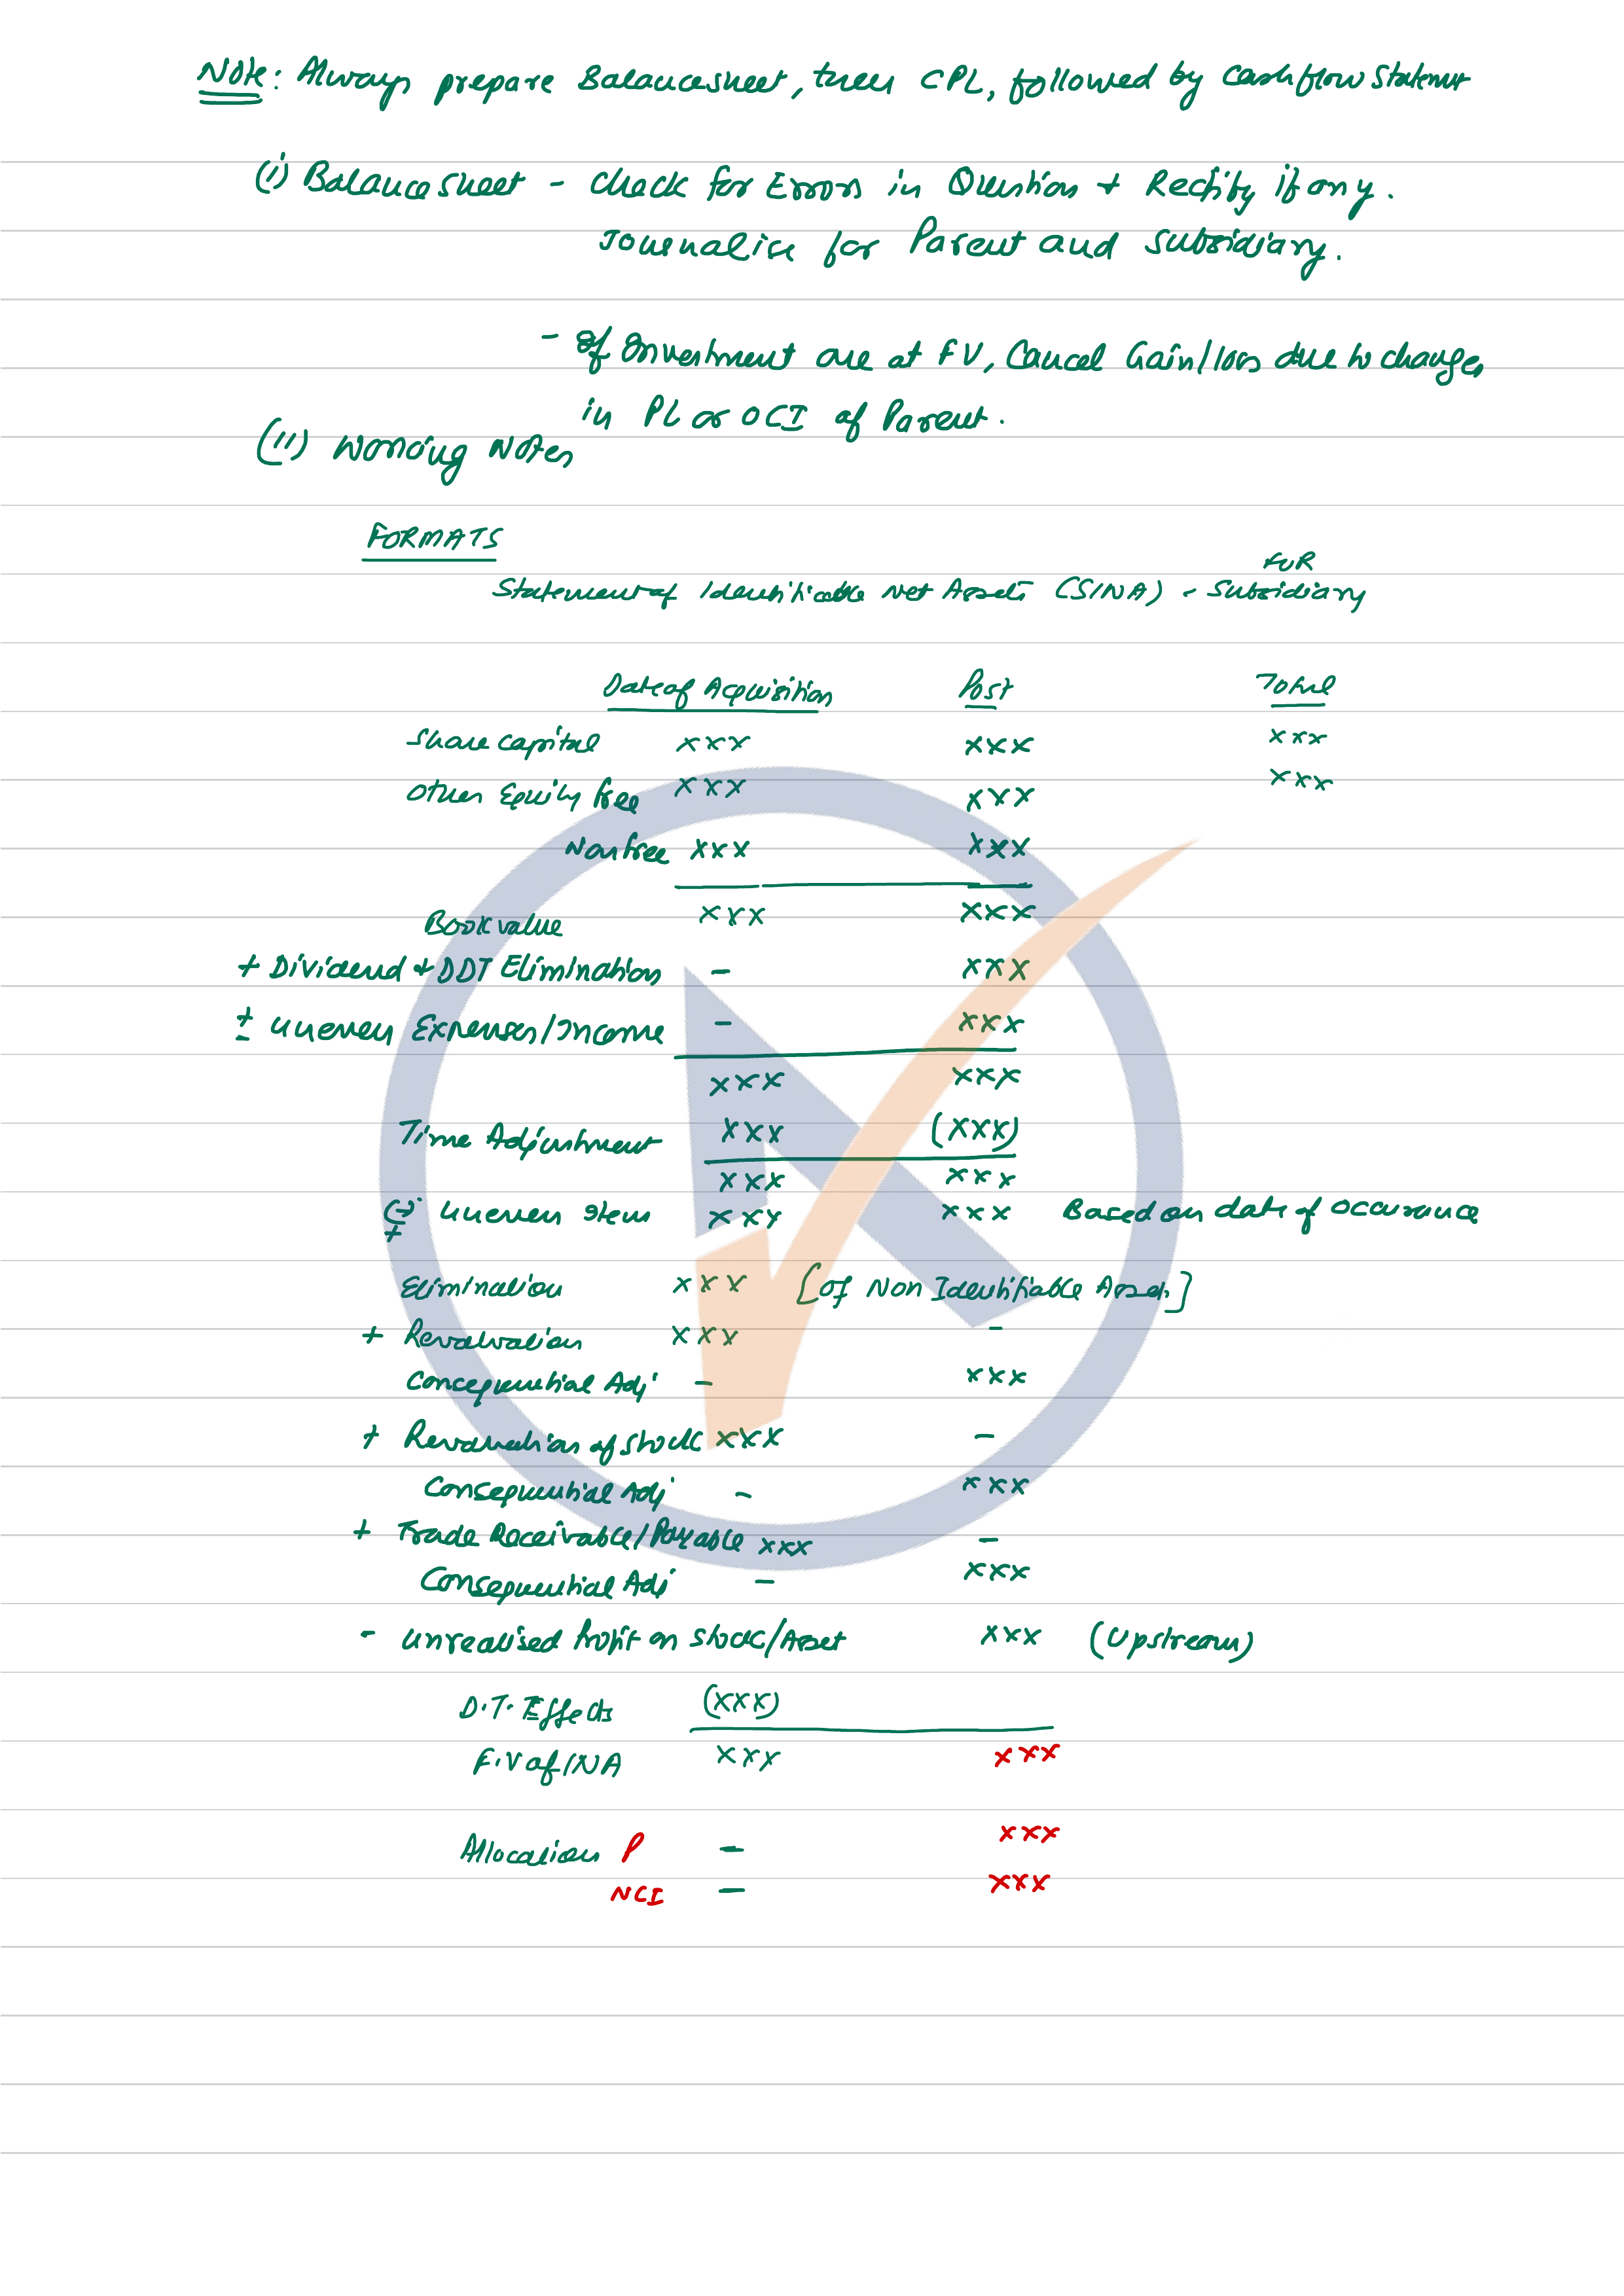 Note: Always prepare Balancesheet, then CPL, followed by Cashflow Statement
(i) Balancesheet - Check for Errors in Question & Rectify if any.
Journalise for Parent and Subsidiary.
- If Investment are at FV, Cancel Gain/loss due to changes
in PL or OCI of Parent.
(ii) Working Notes
FORMATS
Statement of Identifiable Net Assets (SINA) - for Subsidiary
Date of Acquisition Post Total
Share capital xxx xxx xxx
Other Equity free xxx xxx xxx
Non free xxx xxx
Book value xxx xxx
+ Dividend & DDT Elimination - xxx
± uneven Expenses/Income - xxx
xxx xxx
Time Adjustment xxx (xxx)
xxx xxx
(-) + uneven Item xxx xxx Based on date of occurance
Elimination xxx [Of Non Identifiable Assets]
+ Revaluation xxx -
Consequential Adj - xxx
+ Revaluation of stock xxx -
Consequential Adj - xxx
+ Trade Receivable/Payable xxx -
Consequential Adj - xxx
- unrealised Profit on Stock/Asset xxx (Upstream)
D.T. Effects (xxx)
F.V of INA xxx xxx
Allocation P - xxx
NCI - xxx